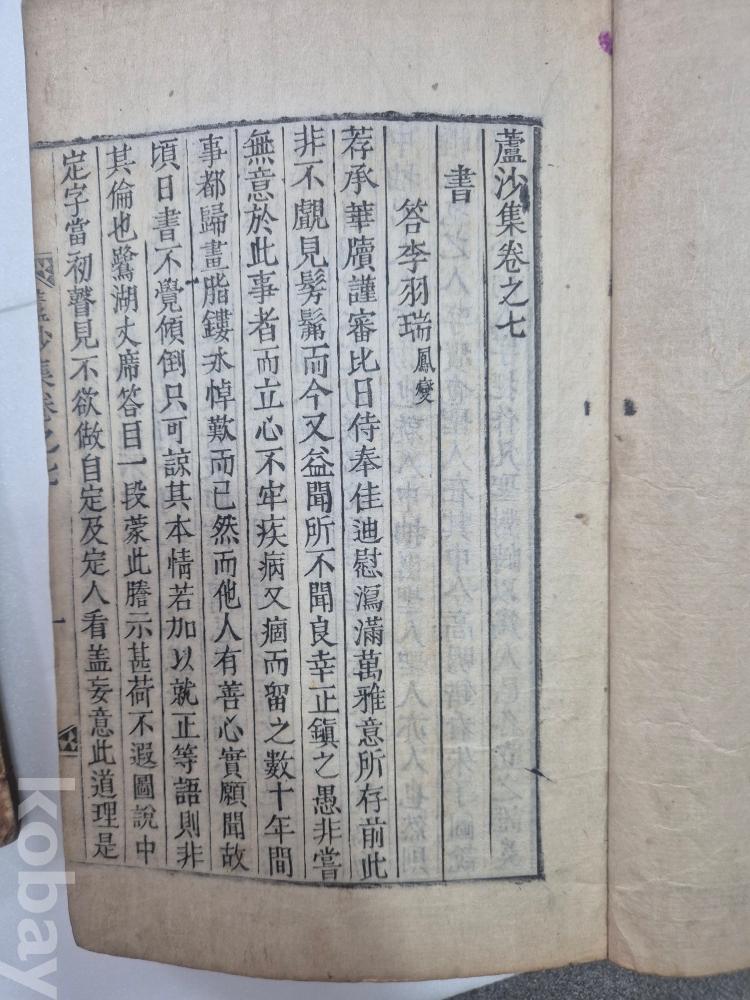 蘆沙集卷之七
書
答李羽瑞鳳燮
荐承華牘謹審比日侍奉佳迪慰瀉滿萬雅意所存前此
非不覰見髣髴而今又益聞所不聞良幸正鎭之愚非嘗
無意於此事者而立心不牢疾病又痼而留之數十年間
事都歸畫脂鏤氷悼歎而已然而他人有善心實願聞故
頃日書不覺傾倒只可諒其本情若加以就正等語則非
其倫也鷺湖丈席答目一段蒙此謄示甚荷不遐圖說中
定字當初瞥見不欲做自定及定人看盖妄意此道理是
蘆沙集卷之七
一
kobay